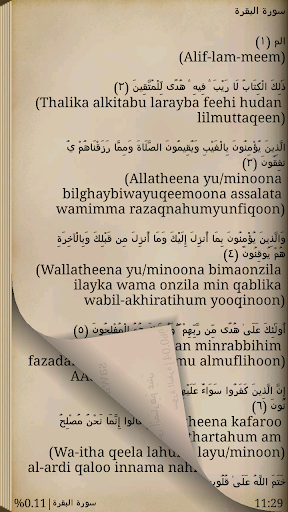 سورة البقرة
الم (١)
(Alif-lam-meem)
ذَلِكَ الْكِتَابُ لَا رَيْبَ ۛ فِيهِ ۛ هُدًى لِّلْمُتَّقِينَ (٢)
(Thalika alkitabu larayba feehi hudan
lilmuttaqeen)
الَّذِينَ يُؤْمِنُونَ بِالْغَيْبِ وَيُقِيمُونَ الصَّلَاةَ وَمِمَّا رَزَقْنَاهُمْ يُ
نفِقُونَ (٣)
(Allatheena yu/minoona
bilghaybiwayuqeemoona assalata
wamimma razaqnahumyunfiqoon)
وَالَّذِينَ يُؤْمِنُونَ بِمَا أُنزِلَ إِلَيْكَ وَمَا أُنزِلَ مِن قَبْلِكَ وَبِالْآخِرَةِ
هُمْ يُوقِنُونَ (٤)
(Wallatheena yu/minoona bimaonzila
ilayka wama onzila min qablika
wabil-akhiratihum yooqinoon)
أُولَئِكَ عَلَى هُدًى مِّن رَّبِّهِمْ الْمُفْلِحُونَ (٥)
an minrabbihim
mu almuflihoon)
إِنَّ الَّذِينَ كَفَرُوا سَوَاءٌ عَلَيْهِمْ
نُونَ (٦)
theena kafaroo
thartahum am
قَالُوا إِنَّمَا نَحْنُ مُصْلِحُ
(Wa-itha qeela lahum layu/minoon)
al-ardi qaloo innama nah
خَتَمَ اللَّهُ عَلَى قُلُوبِ
%0.11 | سورة البقرة
11:29